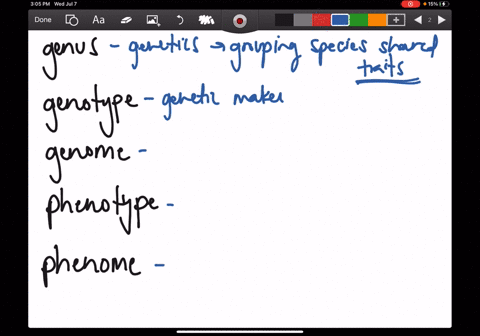 3:05 PM Wed Jul 7
15%
Done
Aa
2
genus - genetics → grouping species shared
traits
genotype - genetic makeu
genome -
phenotype -
phenome -